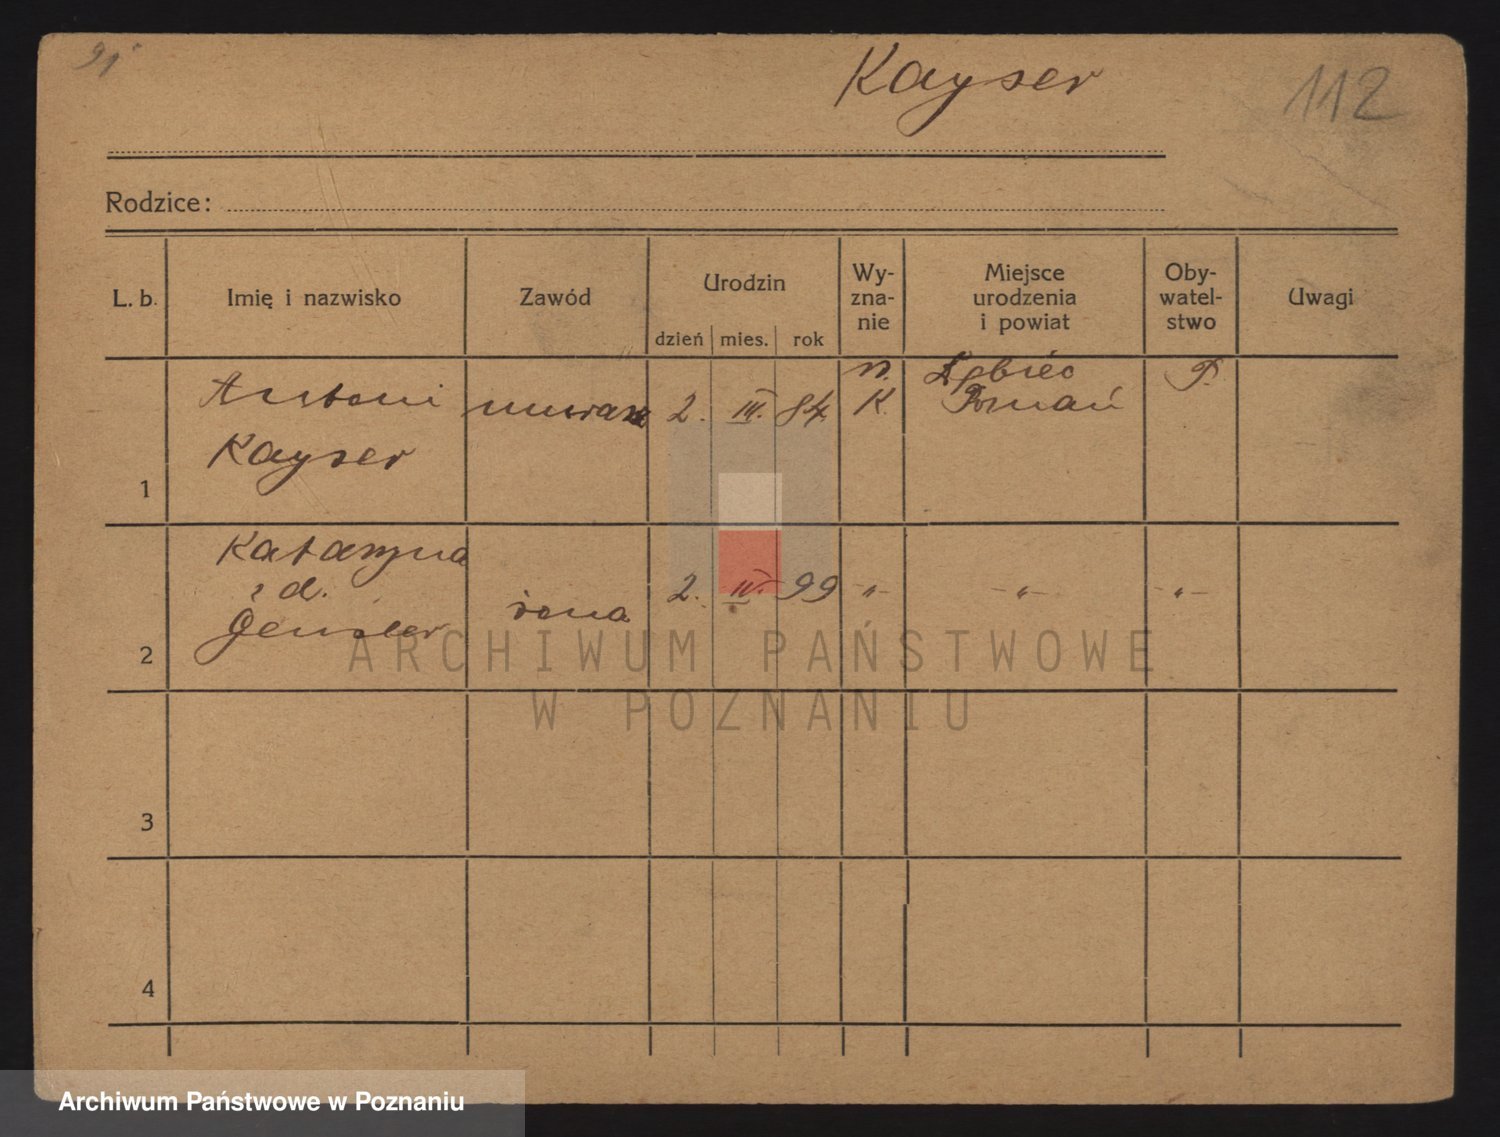 91
Kayser
112
Rodzice:
L. b.
Imię i nazwisko
Zawód
Urodzin
dzień mies. rok
Wy-
zna-
nie
Miejsce
urodzenia
i powiat
Oby-
watel-
stwo
Uwagi
1
Antoni
Kayser
murarz
2. III. 84.
K.
Poznań
P.
2
Katarzyna
z d.
Gensler
żona
2. IV. 99
-"-
-"-
-"-
3
4
ARCHIWUM PAŃSTWOWE
W POZNANIU
Archiwum Państwowe w Poznaniu